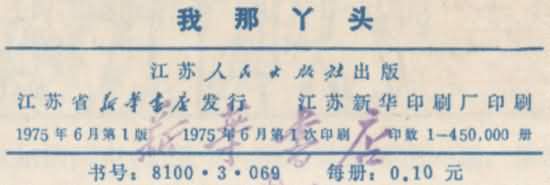 我那丫头
江苏人民出版社出版
江苏省新华书店发行 江苏新华印刷厂印刷
1975年6月第1版 1975年6月第1次印刷 印数 1—450,000 册
书号：8100·3·069 每册：0.10 元
新华书店